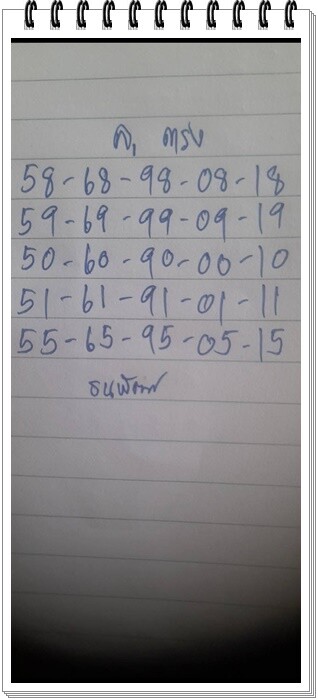 ตรง
58-68-98-08-18
59-69-99-09-19
50-60-90-00-10
51-61-91-01-11
55-65-95-05-15
ธนพัฒน์